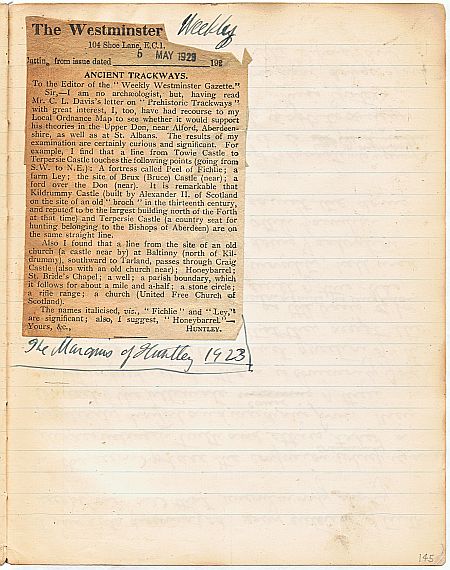 The Westminster Weekly
104 Shoe Lane, E.C.1.
from issue dated 5 MAY 1923 192
ANCIENT TRACKWAYS.
To the Editor of the "Weekly Westminster Gazette."
Sir,—I am no archæologist, but, having read
Mr. C. L. Davis's letter on "Prehistoric Trackways"
with great interest, I, too, have had recourse to my
Local Ordnance Map to see whether it would support
his theories in the Upper Don, near Alford, Aberdeen-
shire, as well as at St. Albans. The results of my
examination are certainly curious and significant. For
example, I find that a line from Towie Castle to
Terpersie Castle touches the following points (going from
S.W. to N.E.): A fortress called Peel of Fichlie; a
farm Ley; the site of Brux (Bruce) Castle (near); a
ford over the Don (near). It is remarkable that
Kildrummy Castle (built by Alexander II. of Scotland
on the site of an old "broch" in the thirteenth century,
and reputed to be the largest building north of the Forth
at that time) and Terpersie Castle (a country seat for
hunting belonging to the Bishops of Aberdeen) are on
the same straight line.
Also I found that a line from the site of an old
church (a castle near by) at Baltinny (north of Kil-
drummy), southward to Tarland, passes through Craig
Castle (also with an old church near); Honeybarrel;
St. Bride's Chapel; a well; a parish boundary, which
it follows for about a mile and a-half; a stone circle;
a rifle range; a church (United Free Church of
Scotland).
The names italicised, viz., "Fichlie" and "Ley,"
are significant; also, I suggest, "Honeybarrel."—
Yours, &c., HUNTLEY.
The Marquis of Huntley 1923
145